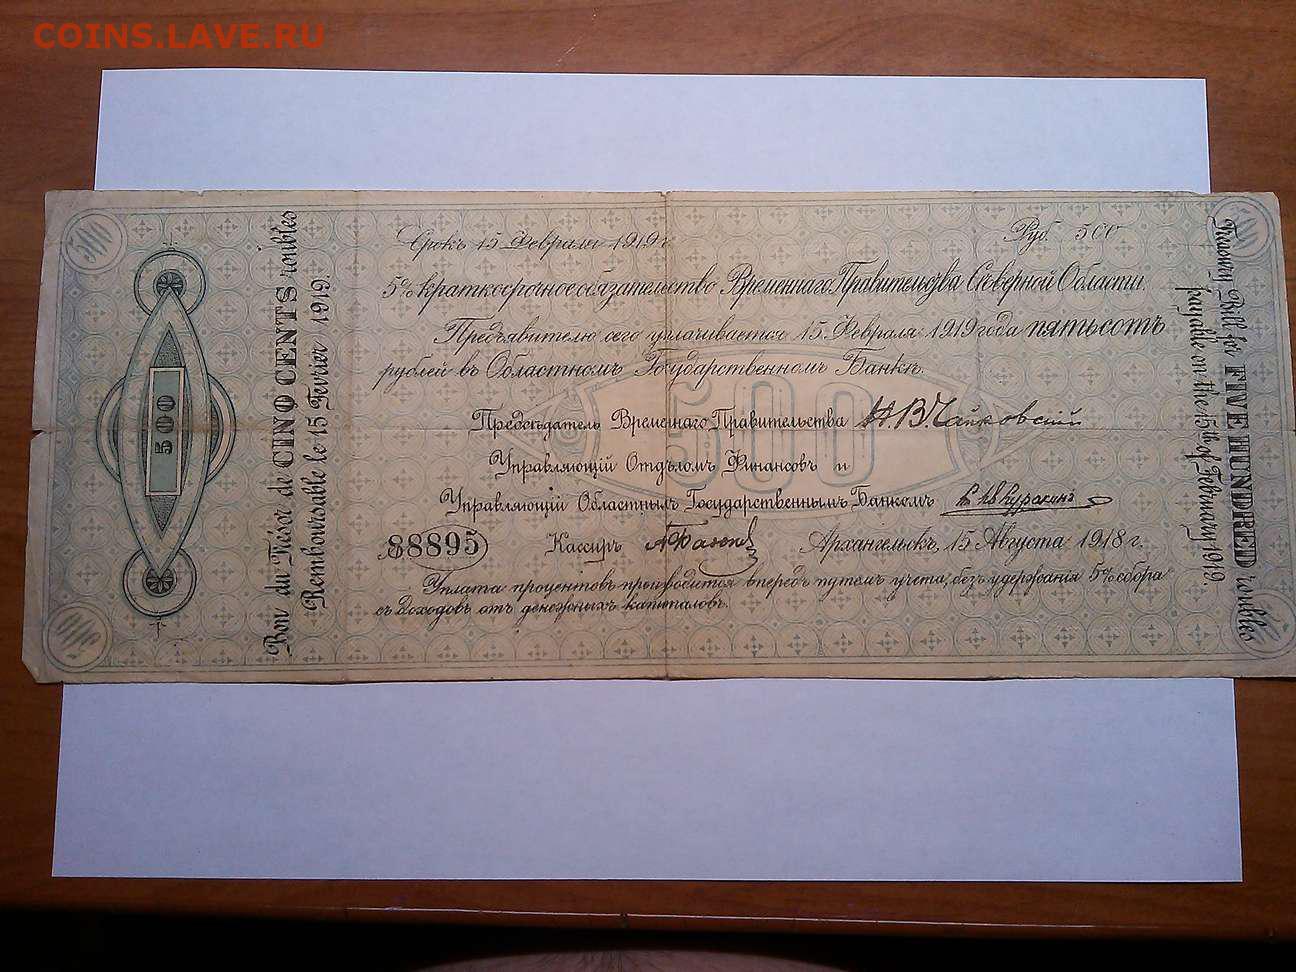 COINS.LAVE.RU
500
500
Bon du Trésor de CINQ CENTS roubles
Remboursable le 15 Fevrier 1919.
Срокъ 15 Февраля 1919 г.
Руб. 500
5% краткосрочное обязательство Временнаго Правительства Сѣверной Области.
Предъявителю сего уплачивается 15 Февраля 1919 года пятьсотъ
рублей въ Областномъ Государственномъ Банкѣ.
500
Предсѣдатель Временнаго Правительства Н. В. Чайковскій
Управляющій Отдѣломъ Финансовъ и
Управляющій Областнымъ Государственнымъ Банкомъ Куракинъ
88895
Кассиръ
Архангельскъ, 15 Августа 1918 г.
Уплата процентовъ производится впередъ путемъ учета, безъ удержанія 5% сбора
съ доходовъ отъ денежныхъ капиталовъ.
Treasury Bill for FIVE HUNDRED roubles
payable on the 15th of February 1919
500
500
500